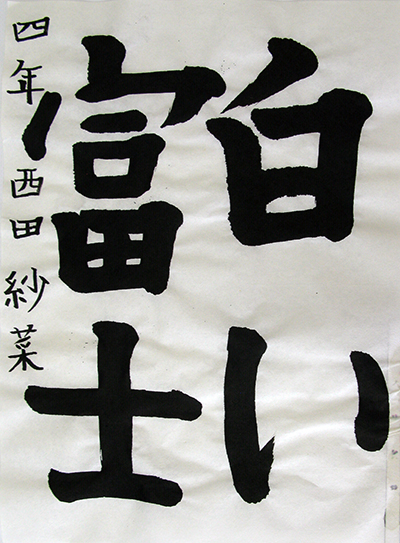 白い
富士
四年 西田 紗菜